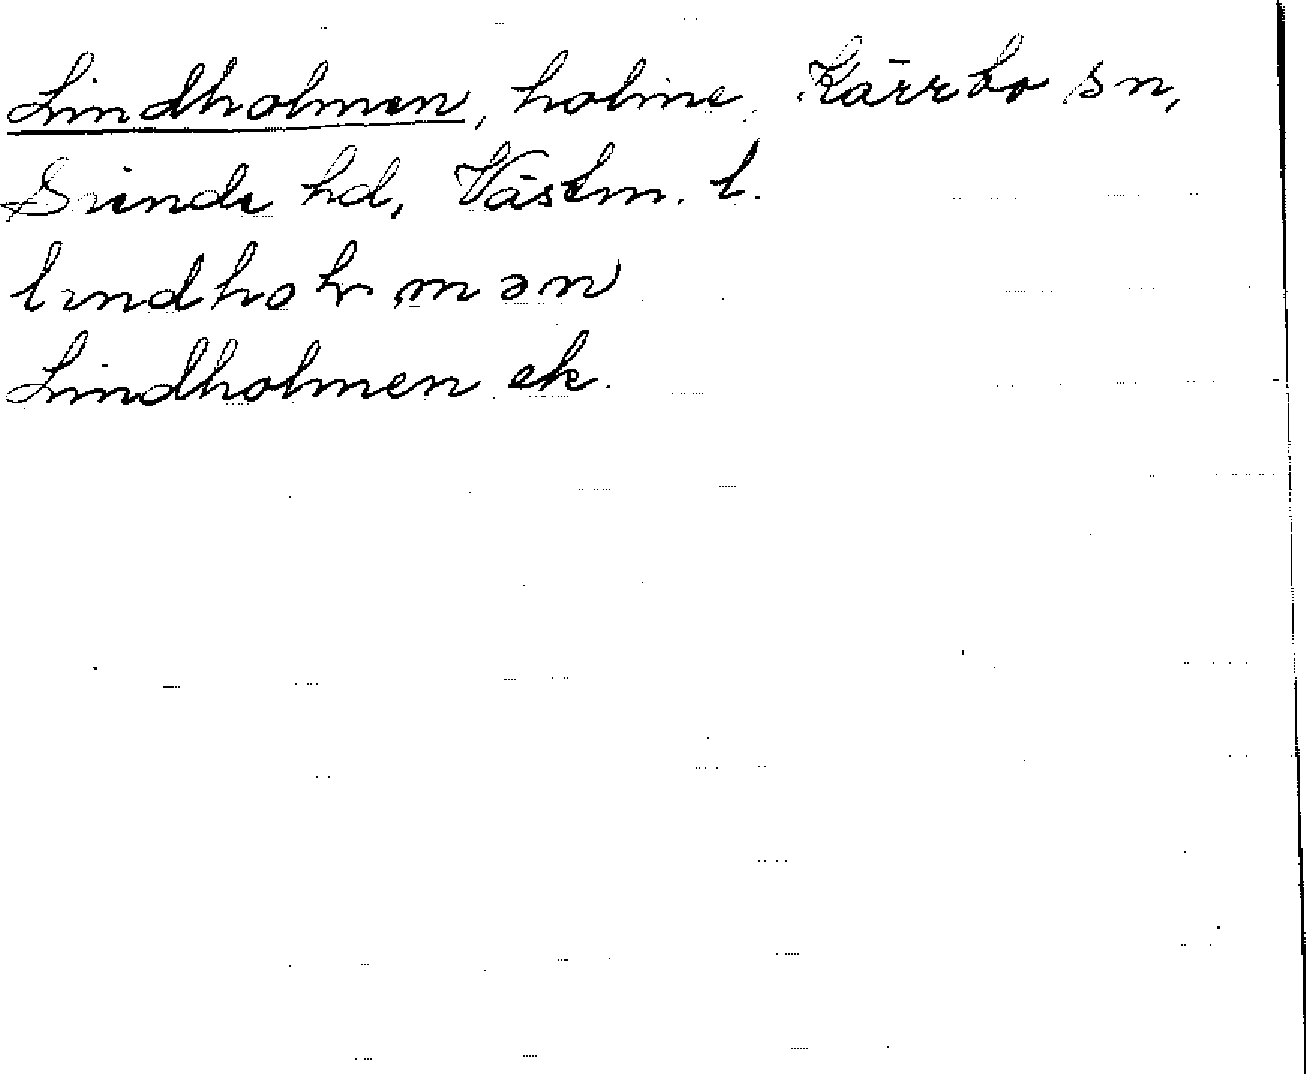 Lindholmen, holme, Kärrbo sn,
Siende hd, Västm. l.
Lindholmen ek.